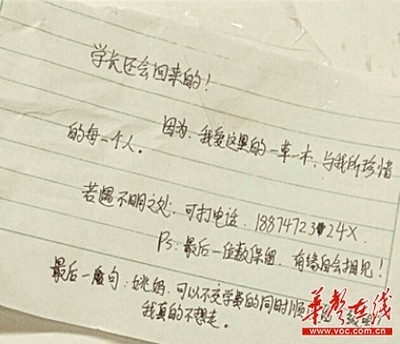 学长还会回来的！
因为，我爱这里的一草一木，与我所珍惜
的每一个人。
若遇不明之处，可打电话，1887472324X.
Ps：最后一位数保留，有缘自会相见！
最后一句：姚妈，可以不交学费的同时顺
我真的不想走。
华声在线
www.voc.com.cn